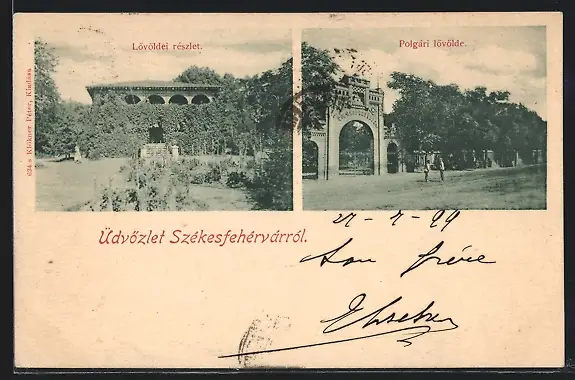 Lövöldei részlet.
Polgári lövölde.
634 s Klökner Péter, Kiadása
Üdvözlet Székesfehérvárról.
27-7-99
frère